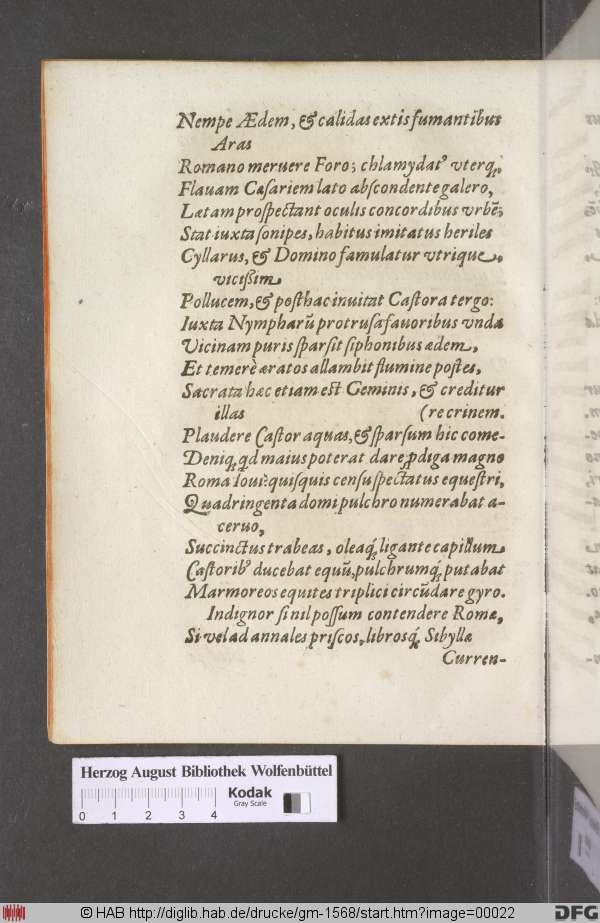 Nempe Ædem, & calidas extis fumantibus
Aras
Romano meruere Foro; chlamydatꝰ vterq;,
Flauam Cæsariem lato abscondente galero,
Lætam prospectant oculis concordibus vrbē;
Stat iuxta sonipes, habitus imitatus heriles
Cyllarus, & Domino famulatur vtrique,
vicißim
Pollucem, & posthac inuitat Castora tergo:
Iuxta Nympharū protrusa fauoribus vnda
Vicinam puris sparsit siphonibus ædem,
Et temerè æratos allambit flumine postes,
Sacrata hæc etiam est Geminis, & creditur
illas (re crinem.
Plaudere Castor aquas, & sparsum hic come-
Deniq; qd maius poterat dare, ꝓdiga magno
Roma Ioui: quisquis censu spectatus equestri,
Quadringenta domi pulchro numerabat a-
ceruo,
Succinctus trabeas, oleaq; ligante capillum
Castoribꝰ ducebat equū, pulchrumq; putabat
Marmoreos equites triplici circūdare gyro.
Indignor si nil possum contendere Romæ,
Si vel ad annales priscos, librosq; Sibyllæ
Curren-
Herzog August Bibliothek Wolfenbüttel
Kodak
Gray Scale
0 1 2 3 4
© HAB http://diglib.hab.de/drucke/gm-1568/start.htm?image=00022
DFG